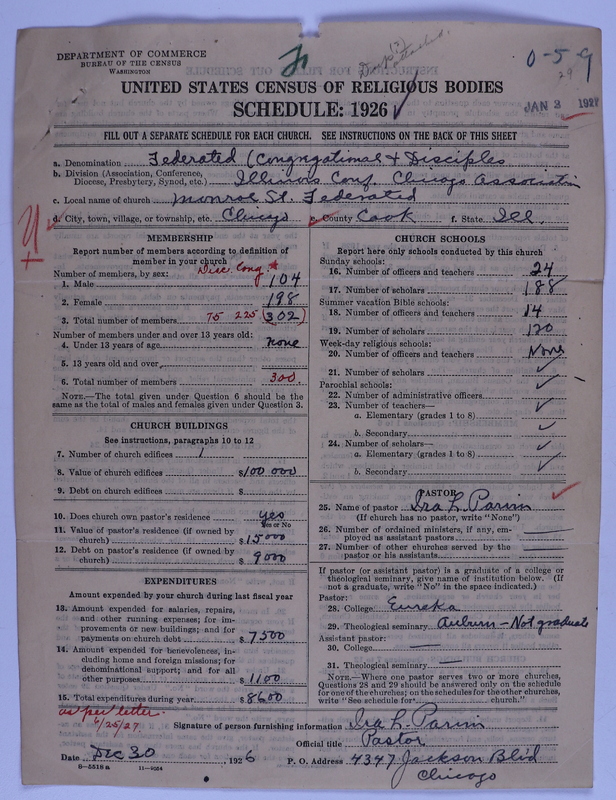 DEPARTMENT OF COMMERCE
BUREAU OF THE CENSUS
WASHINGTON
0-5-9
29
JAN 3 1927
UNITED STATES CENSUS OF RELIGIOUS BODIES
SCHEDULE: 1926
FILL OUT A SEPARATE SCHEDULE FOR EACH CHURCH. SEE INSTRUCTIONS ON THE BACK OF THIS SHEET
a. Denomination Federated (Congregational & Disciples
b. Division (Association, Conference, Diocese, Presbytery, Synod, etc.) Illinois Conf. Chicago Association
c. Local name of church Monroe St. Federated
d. City, town, village, or township, etc. Chicago e. County Cook f. State Ill.
MEMBERSHIP
Report number of members according to definition of
member in your church
Disc. Cong. *
Number of members, by sex:
1. Male 104
2. Female 198
3. Total number of members 75 225 (302)
Number of members under and over 13 years old:
4. Under 13 years of age none
5. 13 years old and over
6. Total number of members 300
NOTE.—The total given under Question 6 should be
same as the total of males and females given under Question 3.
CHURCH BUILDINGS
See instructions, paragraphs 10 to 12
7. Number of church edifices 1
8. Value of church edifices $100 000
9. Debt on church edifices $
10. Does church own pastor's residence yes
Yes or No
11. Value of pastor's residence (if owned by
church) $15000
12. Debt on pastor's residence (if owned by
church) $ 9000
EXPENDITURES
Amount expended by your church during last fiscal year
13. Amount expended for salaries, repairs,
and other running expenses; for im-
provements or new buildings; and for
payments on church debt $7500
14. Amount expended for benevolences, in-
cluding home and foreign missions; for
denominational support; and for all
other purposes $1100
15. Total expenditures during year $8600
as per letter
6/25/27
CHURCH SCHOOLS
Report here only schools conducted by this church
Sunday schools:
16. Number of officers and teachers 24
17. Number of scholars 188
Summer vacation Bible schools:
18. Number of officers and teachers 14
19. Number of scholars 120
Week-day religious schools:
20. Number of officers and teachers None
21. Number of scholars
Parochial schools:
22. Number of administrative officers
23. Number of teachers—
a. Elementary (grades 1 to 8)
b. Secondary
24. Number of scholars—
a. Elementary (grades 1 to 8)
b. Secondary
PASTOR
25. Name of pastor Ira L. Parvin
(If church has no pastor, write "None")
26. Number of ordained ministers, if any, em-
ployed as assistant pastors
27. Number of other churches served by the
pastor or his assistants
If pastor (or assistant pastor) is a graduate of a college or
theological seminary, give name of institution below. (If
not a graduate, write "No" in the space indicated.)
Pastor:
28. College Eureka
29. Theological seminary Auburn - Not graduate
Assistant pastor:
30. College —
31. Theological seminary —
NOTE.—Where one pastor serves two or more churches,
Questions 28 and 29 should be answered only on the schedule
for one of the churches; on the schedules for the other churches,
write "See schedule for church."
Signature of person furnishing information Ira L. Parvin
Official title Pastor
Date Dec 30, 1926 P. O. Address 4347 Jackson Blvd
Chicago
8—5518 a 11—9054